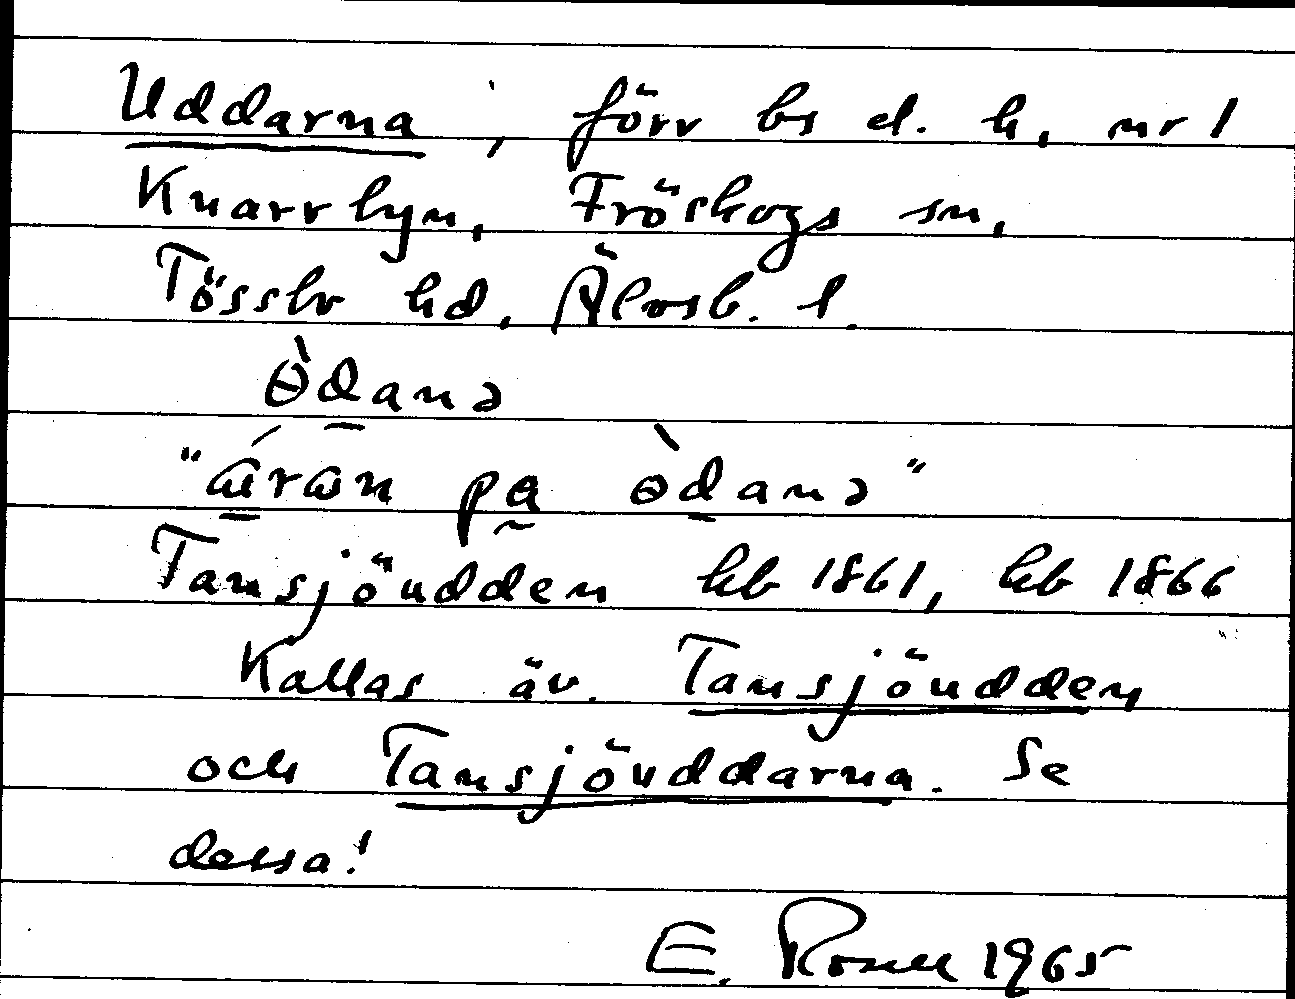 Uddarna, förr bs el. h, nr 1
Knarrbyn, Fröskogs sn,
Tössbr hd, Älvsb. l.
ɵ̀d̲anə
"ǽræn pḁ ɵ̀d̲anə"
Tansjöudden hb 1861, hb 1866
Kallas äv. Tansjöudden
och Tansjöuddarna. Se
dessa!
E. 1965